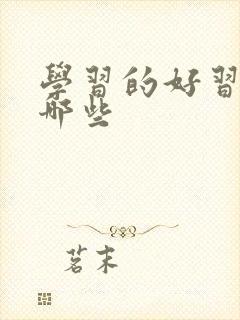 學習的好習
哪些
茗末